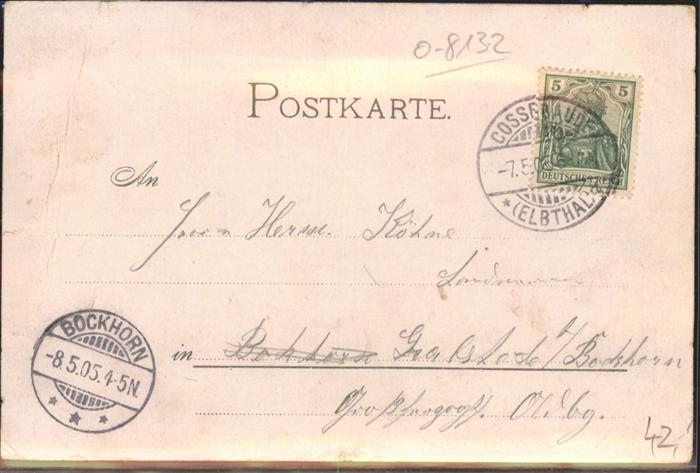 0-8132
POSTKARTE.
5 5
DEUTSCHES REICH
COSSEBAUDE
-7.5.05
* (ELBTHAL)
An
Herrn Herm. Köhne
Landmann
BOCKHORN
-8.5.05.4-5N.
* * *
in Bokhorn b/Bockhorn
Großherzogt. Oldbg.
42,